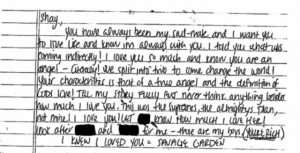 Shay,
You have always been my soul-mate and I want you
to live life and know im always with you. I told you what was
coming indirectly! I love you so much and know you are an
angel - literally! We split into two to come change the world!
Your characteristics is that of a true angel and the definition of
God's love! Tell my story fully but never think anything besides
how much I love you. This was the supremes, the almightys plan,
not mine! I love you! Let know how much I love her!
Look after and for me - these are my boys (You're Rich)
I KNEW I LOVED YOU = SAVAGE GARDEN